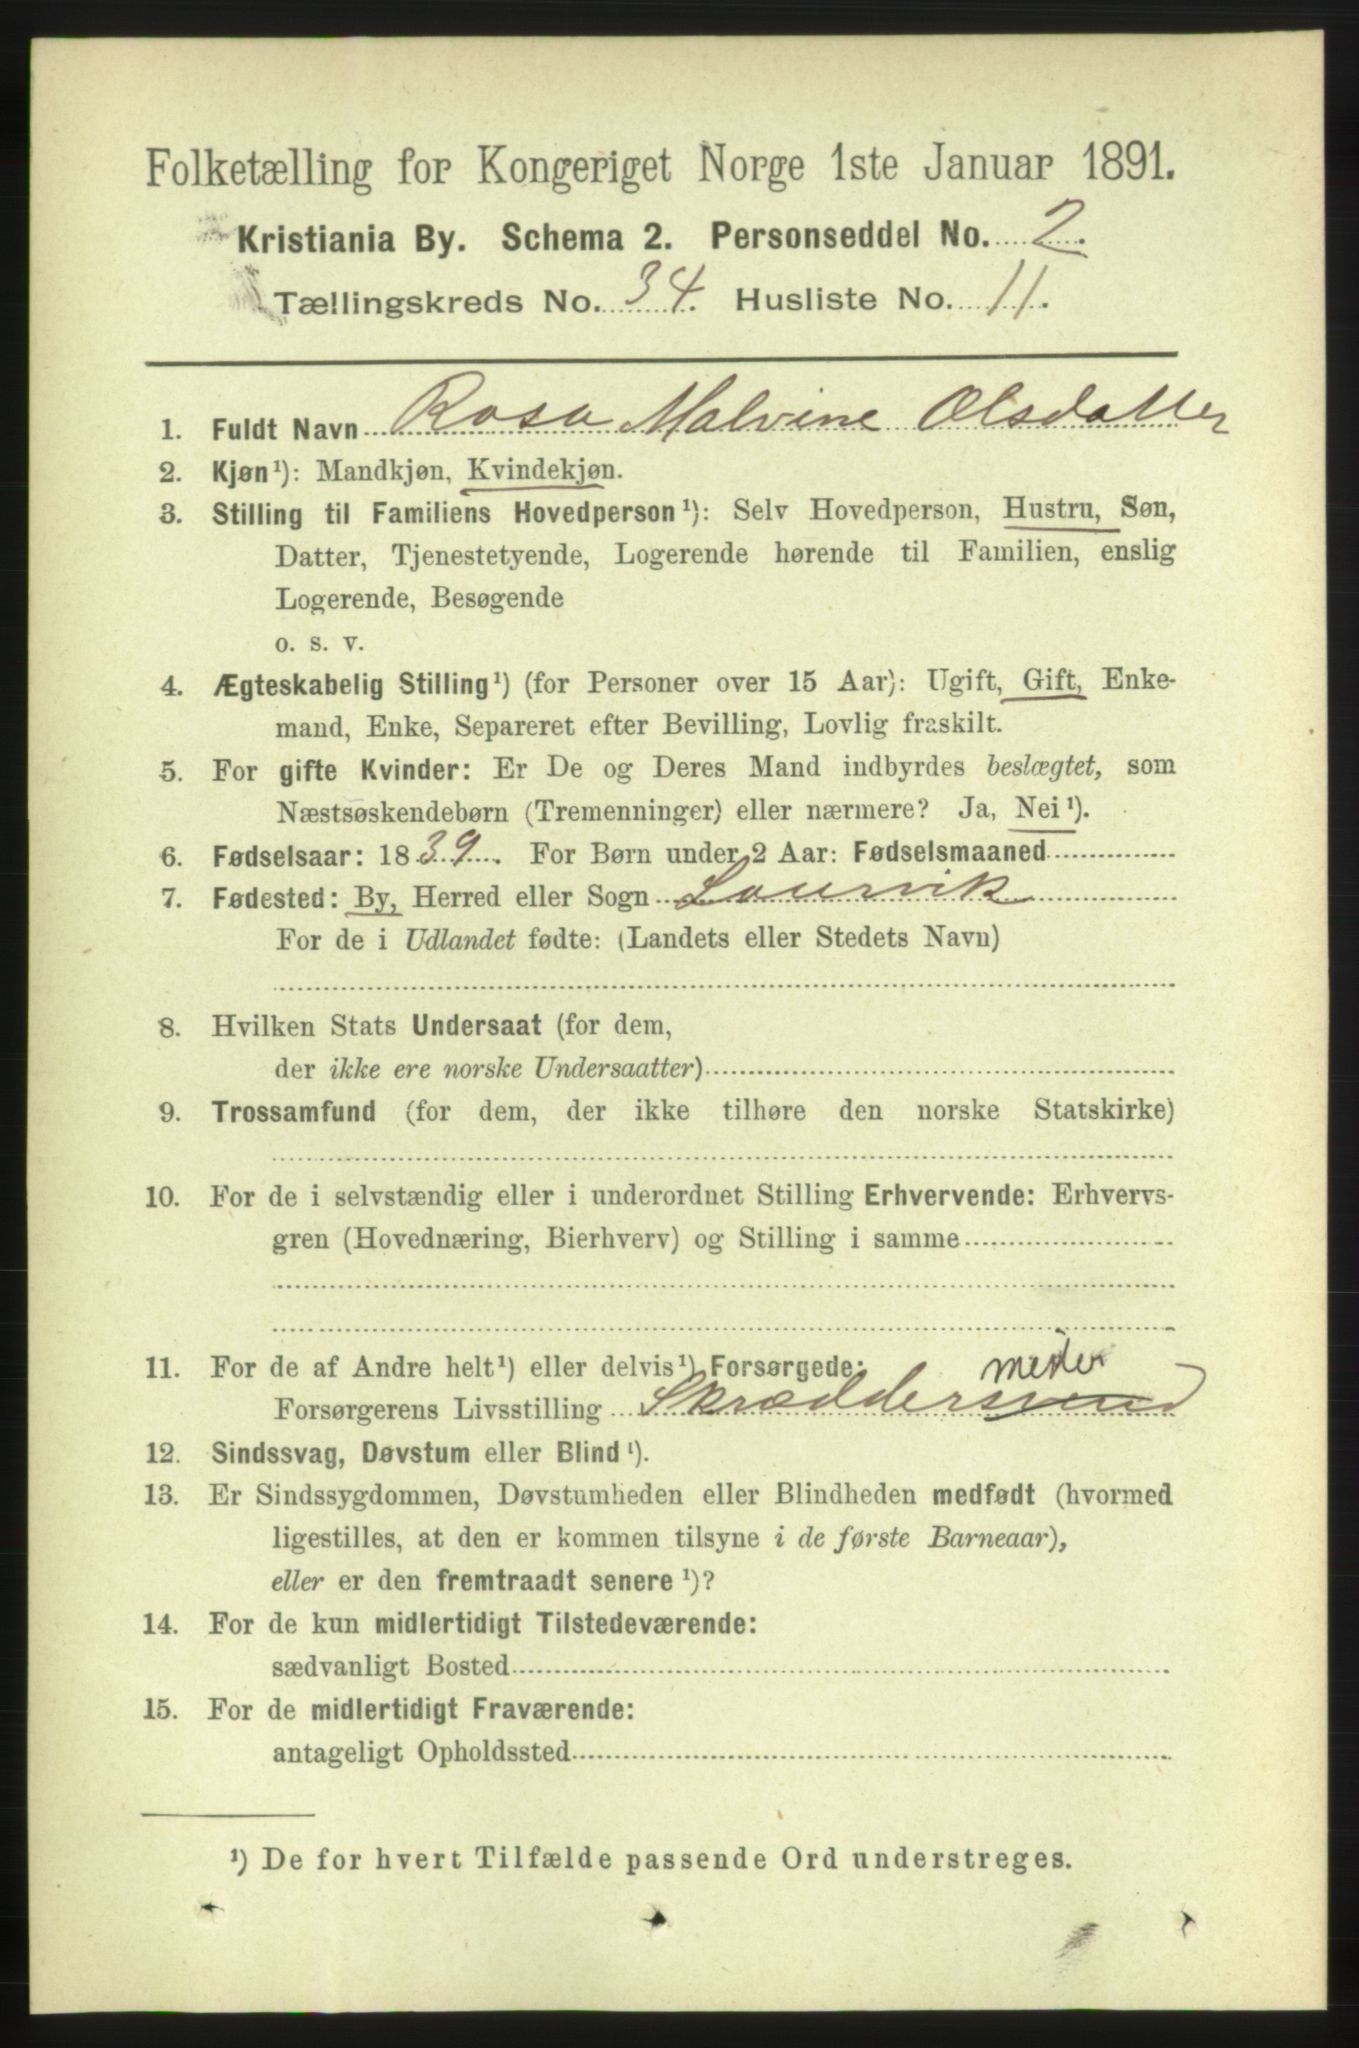 Folketælling for Kongeriget Norge 1ste Januar 1891.
Kristiania By. Schema 2. Personseddel No. 2.
Tællingskreds No. 34. Husliste No. 11.
1. Fuldt Navn Rosa Malvine Olsdatter
2. Kjøn ¹): Mandkjøn, Kvindekjøn.
3. Stilling til Familiens Hovedperson ¹): Selv Hovedperson, Hustru, Søn,
Datter, Tjenestetyende, Logerende hørende til Familien, enslig
Logerende, Besøgende
o. s. v.
4. Ægteskabelig Stilling ¹) (for Personer over 15 Aar): Ugift, Gift, Enke-
mand, Enke, Separeret efter Bevilling, Lovlig fraskilt.
5. For gifte Kvinder: Er De og Deres Mand indbyrdes beslægtet, som
Næstsøskendebørn (Tremenninger) eller nærmere? Ja, Nei ¹).
6. Fødselsaar: 1839. For Børn under 2 Aar: Fødselsmaaned
7. Fødested: By, Herred eller Sogn Laurvik
For de i Udlandet fødte: (Landets eller Stedets Navn)
8. Hvilken Stats Undersaat (for dem,
der ikke ere norske Undersaatter)
9. Trossamfund (for dem, der ikke tilhøre den norske Statskirke)
10. For de i selvstændig eller i underordnet Stilling Erhvervende: Erhvervs-
gren (Hovednæring, Bierhverv) og Stilling i samme
11. For de af Andre helt ¹) eller delvis ¹) Forsørgede:
mester
Forsørgerens Livsstilling Skræddersvend
12. Sindssvag, Døvstum eller Blind ¹).
13. Er Sindssygdommen, Døvstumheden eller Blindheden medfødt (hvormed
ligestilles, at den er kommen tilsyne i de første Barneaar),
eller er den fremtraadt senere ¹)?
14. For de kun midlertidigt Tilstedeværende:
sædvanligt Bosted
15. For de midlertidigt Fraværende:
antageligt Opholdssted
¹) De for hvert Tilfælde passende Ord understreges.